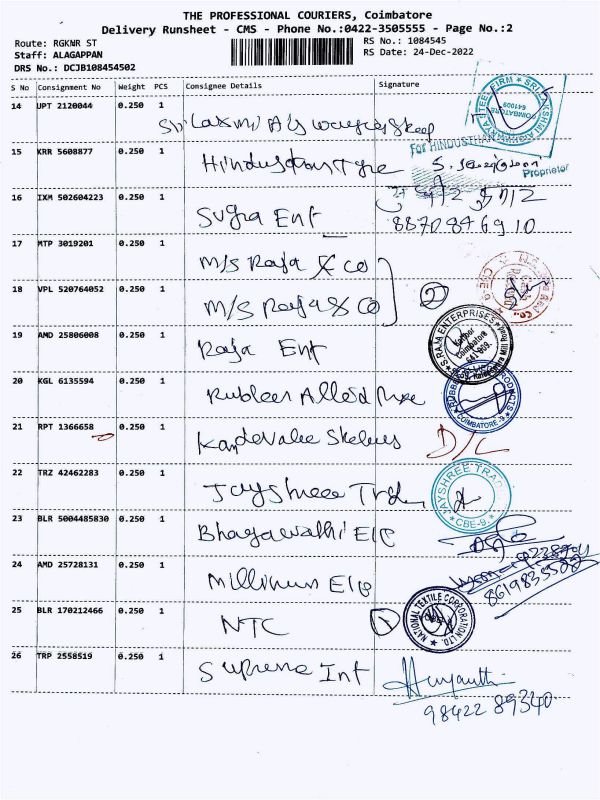 THE PROFESSIONAL COURIERS, Coimbatore
Delivery Runsheet - CMS - Phone No.:0422-3505555 - Page No.:2
Route: RGKNR ST
RS No.: 1084545
Staff: ALAGAPPAN
RS Date: 24-Dec-2022
DRS No.: DCJB108454502
S No Consignment No Weight PCS Consignee Details Signature
14 UPT 2120044 0.250 1
Sri Laxmi
COIMBATORE 641009
15 KRR 5608877 0.250 1
For HINDUSTHAN
Hindusthan Tyre
Proprietor
16 IXM 502604223 0.250 1
Sugra Ent
88708 46910
17 MTP 3019201 0.250 1
M/S Raja & Co
18 VPL 520764052 0.250 1
M/S Raja & Co 2
19 AMD 25806008 0.250 1
Raja Ent
S. RAJA ENTERPRISES
Coimbatore
641 009.
20 KGL 6135594 0.250 1
Rubber Allied
COIMBATORE-9
21 RPT 1366658 0.250 1
D/L
22 TRZ 42462283 0.250 1
Jayshree
JAYSHREE
CBE-9
23 BLR 5004485830 0.250 1
Bhagawathi Ele
24 AMD 25728131 0.250 1
Ele
25 BLR 170212466 0.250 1
NTC 1
NATIONAL TEXTILE CORPORATION LTD.
26 TRP 2558519 0.250 1
Supreme Int
98422 89340